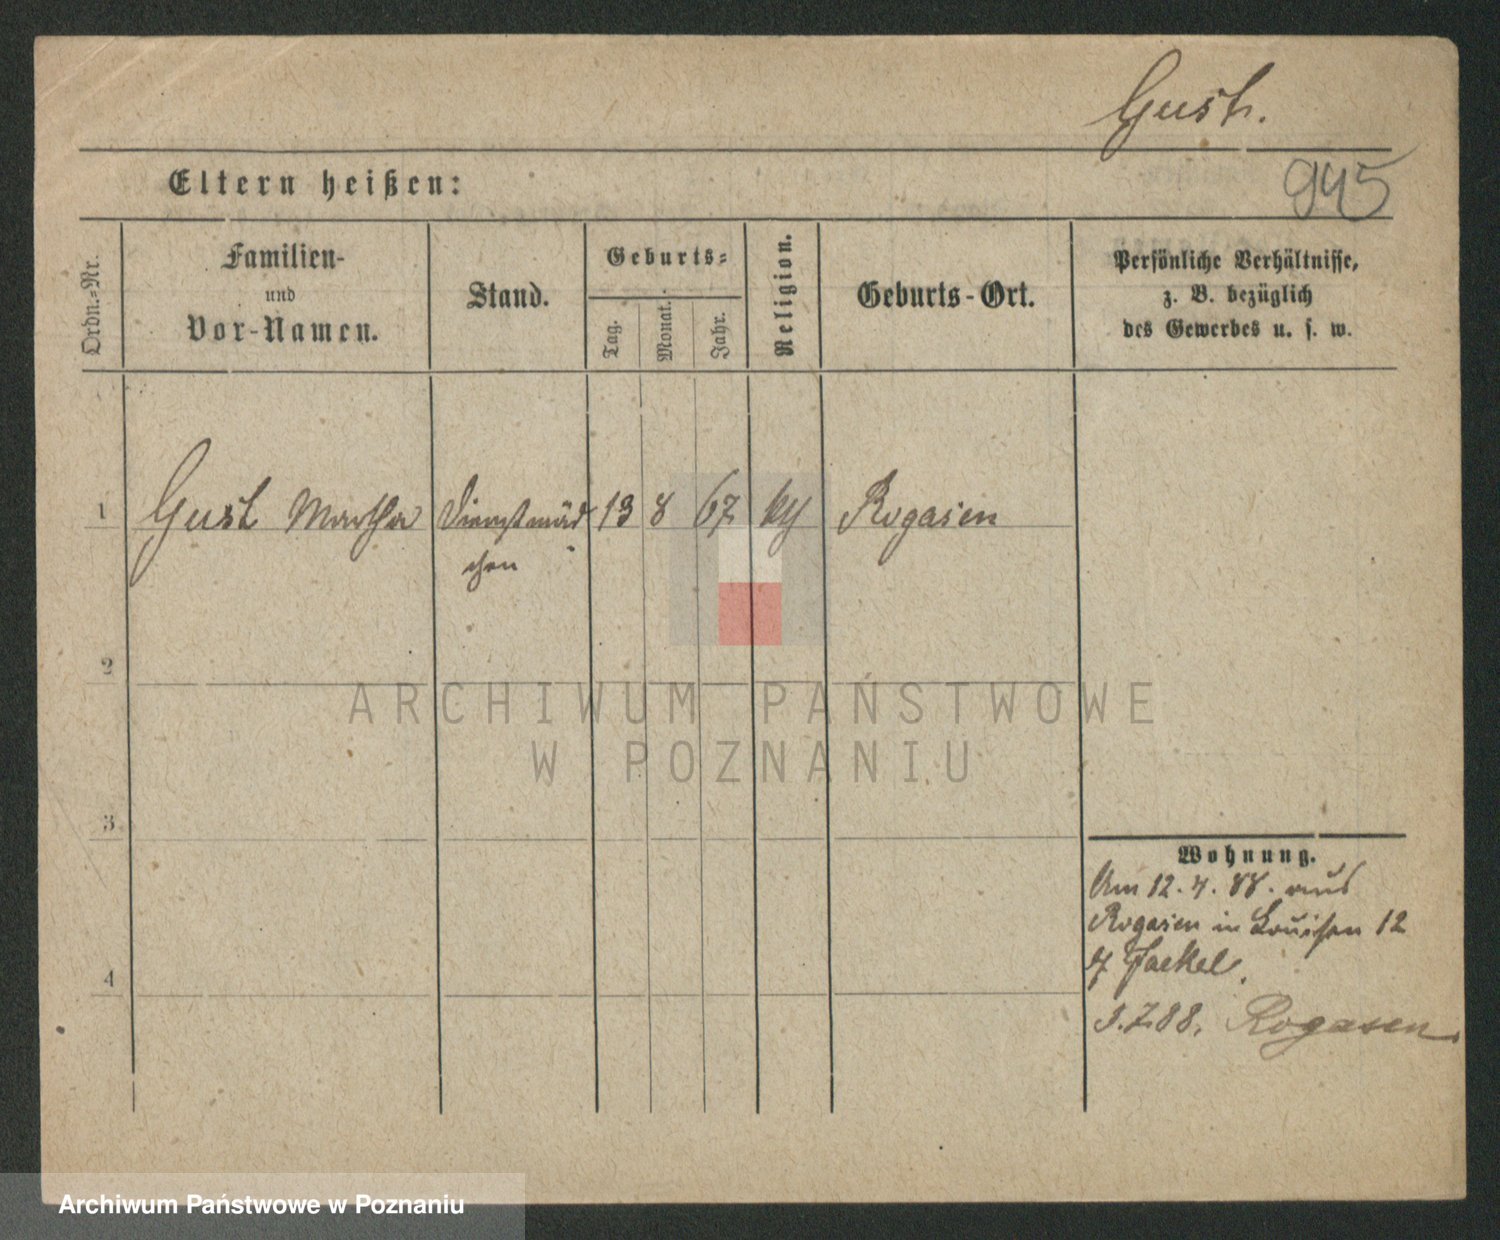 Gust.
945
Eltern heißen:
Ordn.-Nr.
Familien-
und
Vor-Namen.
Stand.
Geburts-
Tag.
Monat.
Jahr.
Religion.
Geburts-Ort.
Persönliche Verhältnisse,
z. B. bezüglich
des Gewerbes u. s. w.
1 Gust Martha Dienstmäd 13 8 67 Rogasen
chen
2
ARCHIWUM PAŃSTWOWE
W POZNANIU
3
Wohnung.
Am 12. 4. 88. aus
Rogasen in Louisen 12
Jaekel.
3.7.88. Rogasen.
4
Archiwum Państwowe w Poznaniu